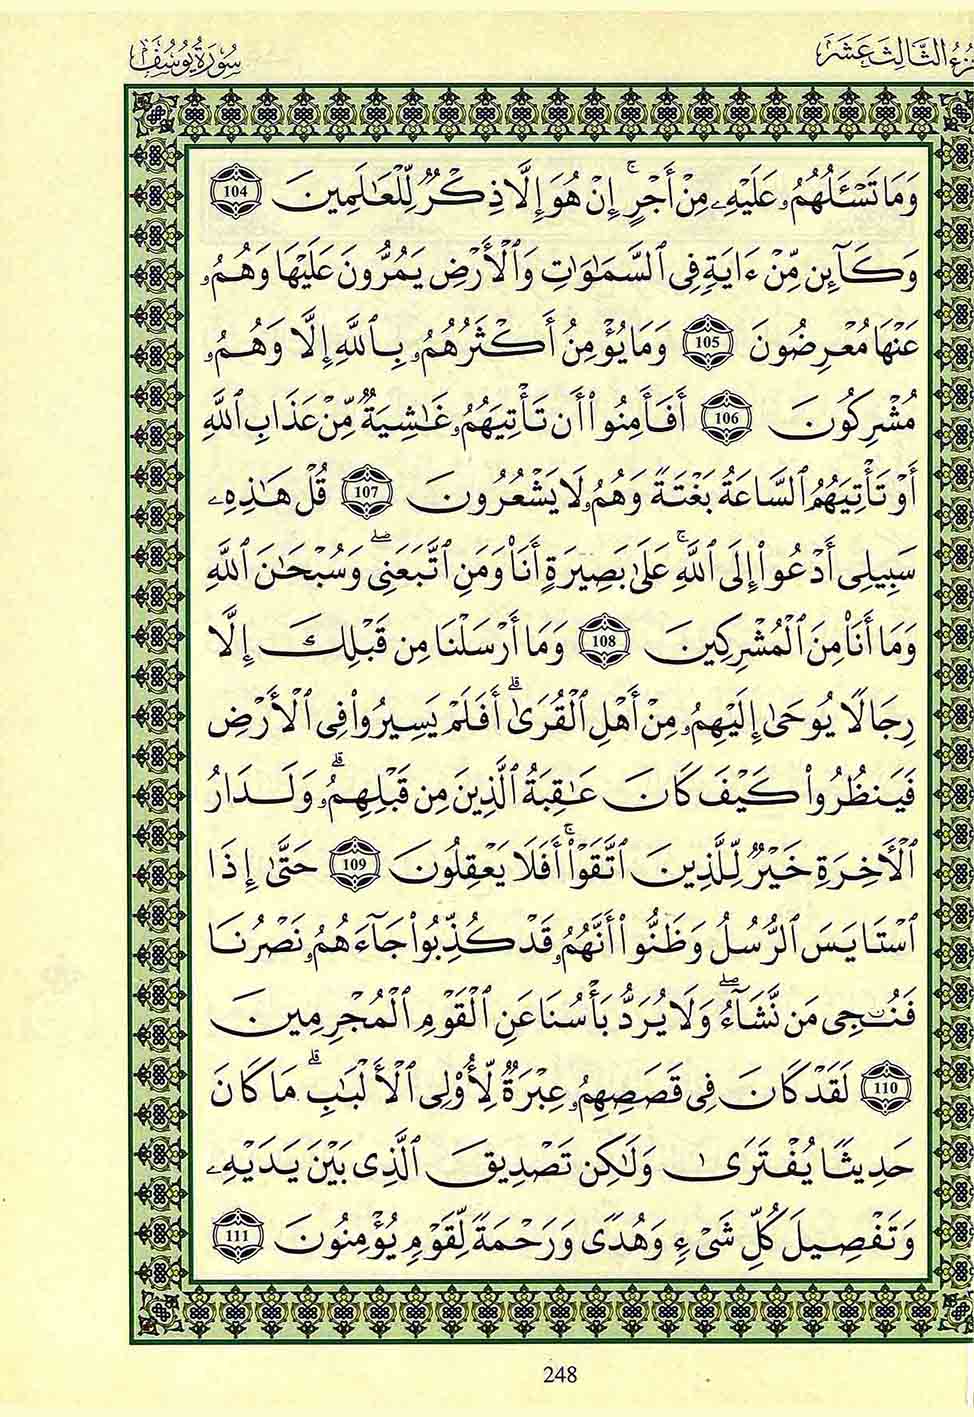 الجزء الثالث عشر
سورة يوسف
وَمَا تَسْـَٔلُهُمُۥ عَلَيْهِۦ مِنْ أَجْرٍۚ إِنْ هُوَ إِلَّا ذِكْرٌ لِّلْعَٰلَمِينَ 104
وَكَآئِن مِّنْ ءَايَةٍ فِى ٱلسَّمَٰوَٰتِ وَٱلْأَرْضِ يَمُرُّونَ عَلَيْهَا وَهُمُۥ
عَنْهَا مُعْرِضُونَ 105 وَمَا يُؤْمِنُ أَكْثَرُهُمُۥ بِٱللَّهِ إِلَّا وَهُمُۥ
مُشْرِكُونَ 106 أَفَأَمِنُوٓا۟ أَن تَأْتِيَهُمُۥ غَٰشِيَةٌ مِّنْ عَذَابِ ٱللَّهِ
أَوْ تَأْتِيَهُمُ ٱلسَّاعَةُ بَغْتَةً وَهُمُۥ لَا يَشْعُرُونَ 107 قُلْ هَٰذِهِۦ
سَبِيلِى أَدْعُوا۟ إِلَى ٱللَّهِۚ عَلَىٰ بَصِيرَةٍ أَنَا۠ وَمَنِ ٱتَّبَعَنِىۖ وَسُبْحَٰنَ ٱللَّهِ
وَمَا أَنَا۠ مِنَ ٱلْمُشْرِكِينَ 108 وَمَا أَرْسَلْنَا مِن قَبْلِكَ إِلَّا
رِجَالًا يُوحَىٰ إِلَيْهِمُۥ مِنْ أَهْلِ ٱلْقُرَىٰۗ أَفَلَمْ يَسِيرُوا۟ فِى ٱلْأَرْضِ
فَيَنظُرُوا۟ كَيْفَ كَانَ عَٰقِبَةُ ٱلَّذِينَ مِن قَبْلِهِمُۥۗ وَلَدَارُ
ٱلْأَخِرَةِ خَيْرٌ لِّلَّذِينَ ٱتَّقَوْا۟ۚ أَفَلَا يَعْقِلُونَ 109 حَتَّىٰ إِذَا
ٱسْتَايَسَ ٱلرُّسُلُ وَظَنُّوا۟ أَنَّهُمُۥ قَدْ كُذِّبُوا۟ جَآءَهُمُۥ نَصْرُنَا
فَنُـۨجِى مَن نَّشَآءُۖ وَلَا يُرَدُّ بَأْسُنَا عَنِ ٱلْقَوْمِ ٱلْمُجْرِمِينَ
110 لَقَدْ كَانَ فِى قَصَصِهِمُۥ عِبْرَةٌ لِّأُو۟لِى ٱلْأَلْبَٰبِۗ مَا كَانَ
حَدِيثًا يُفْتَرَىٰ وَلَٰكِن تَصْدِيقَ ٱلَّذِى بَيْنَ يَدَيْهِۦ
وَتَفْصِيلَ كُلِّ شَىْءٍ وَهُدًى وَرَحْمَةً لِّقَوْمٍ يُؤْمِنُونَ 111
248